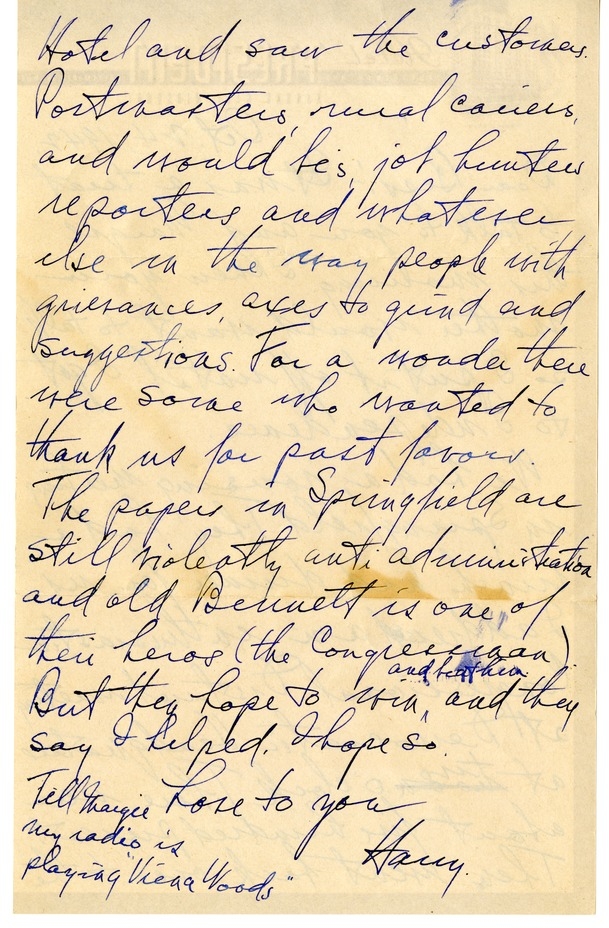 Hotel and saw the customers.
Postmasters, rural carriers,
and would be's, job hunters
reporters and whatever
else in the way people with
grievances, axes to grind and
suggestions. For a wonder there
were some who wanted to
thank us for past favors.
The papers in Springfield are
still violently anti administration
and old Bennett is one of
their heros (the Congressman)
But they hope to win, and they
and beat him
say I helped. I hope so.
Love to you
Harry.
Tell Margie
my radio is
playing "Viena Woods"